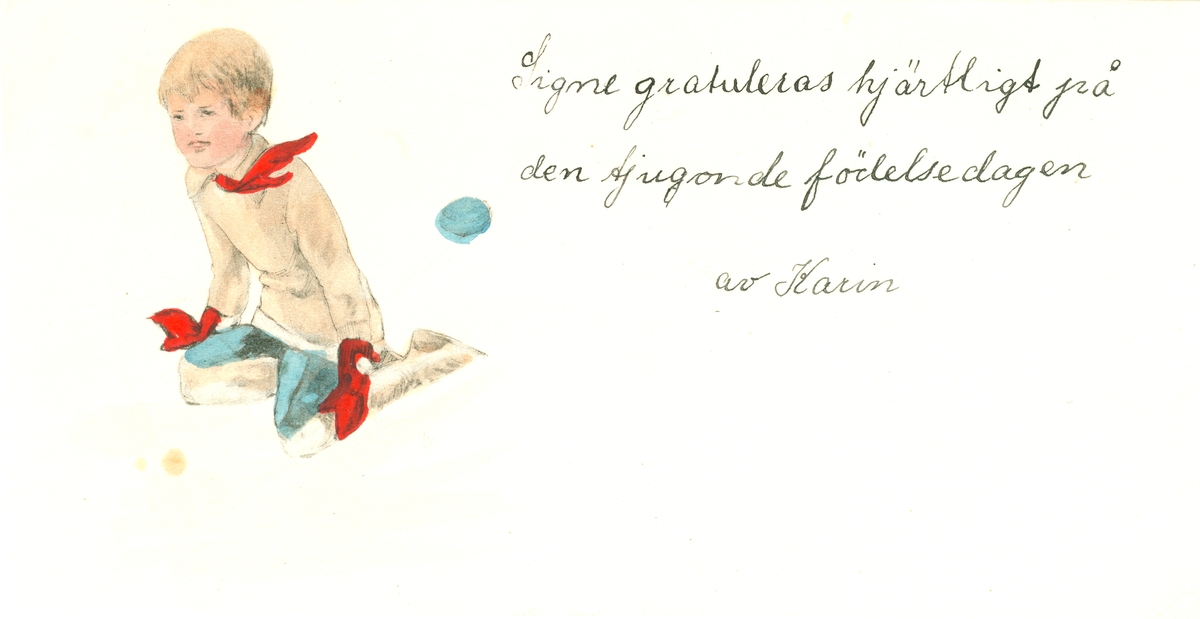 Signe gratuleras hjärtligt på
den tjugonde födelsedagen
av Karin